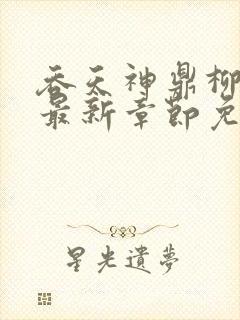 吞天神鼎柳
最新章節免
星光遺夢